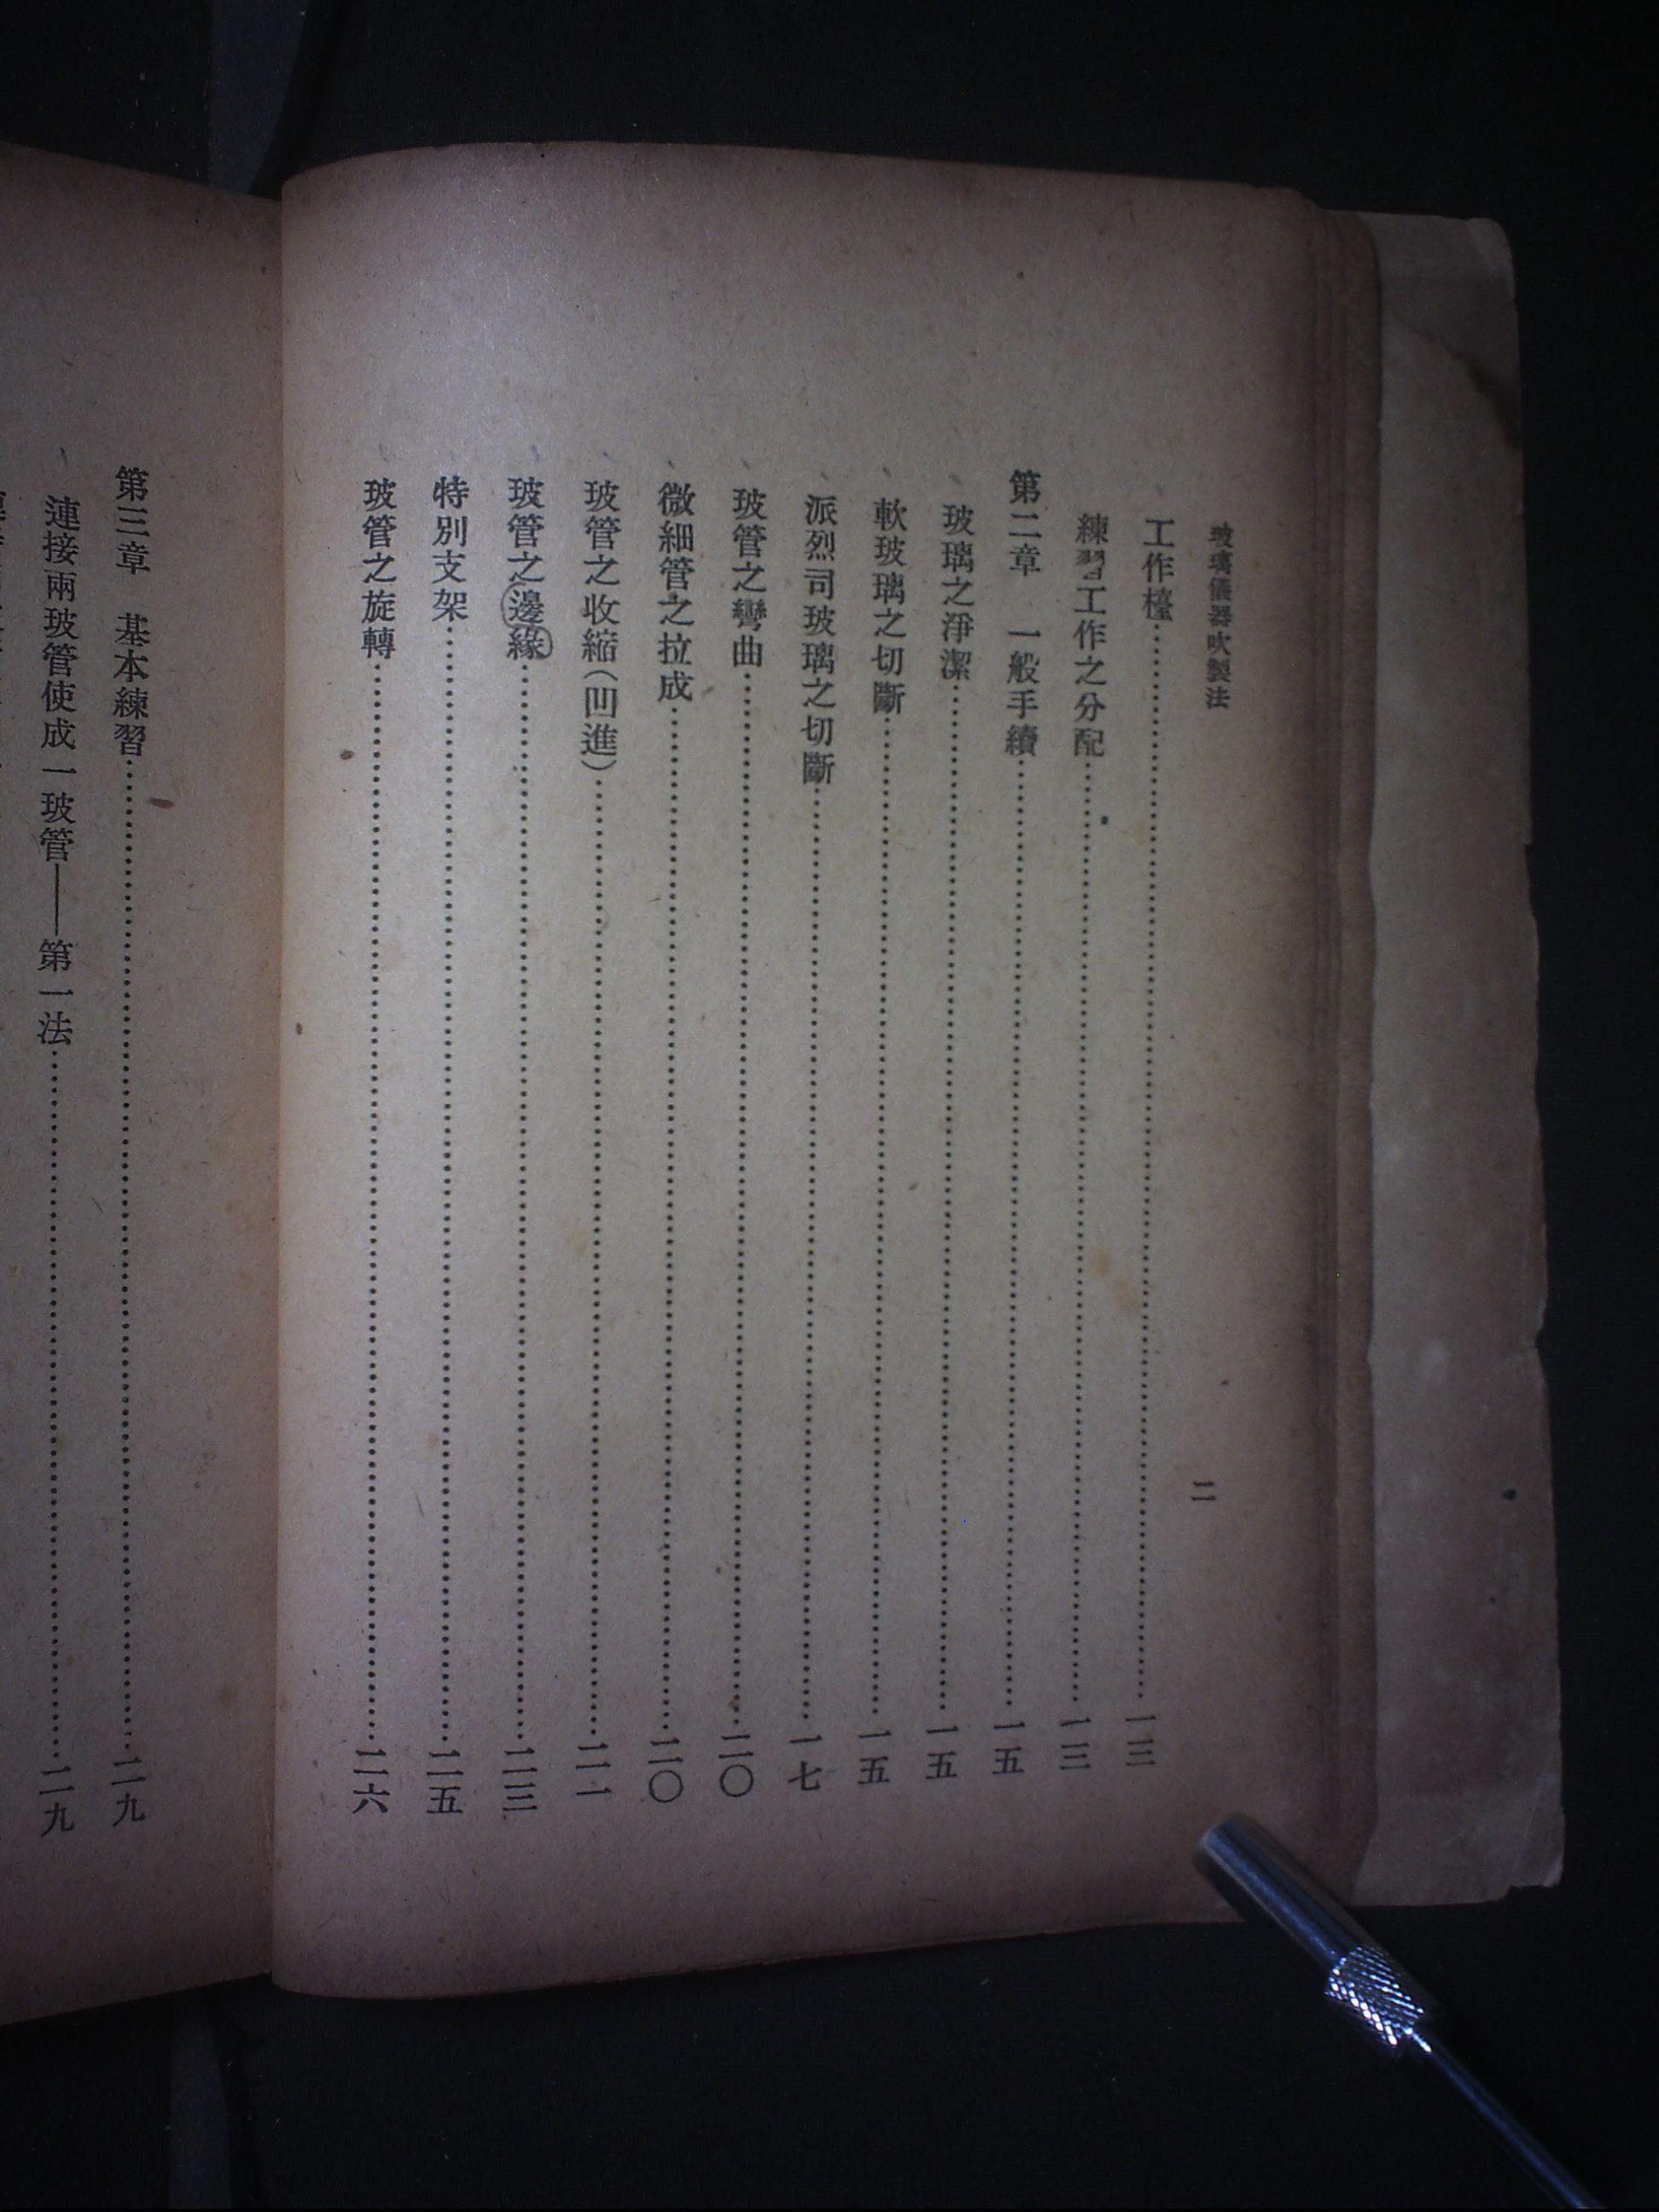 玻璃儀器吹製法
二
工作檯……一三
練習工作之分配……一三
第二章　一般手續……一五
玻璃之淨潔……一五
軟玻璃之切斷……一五
派烈司玻璃之切斷……一七
玻管之彎曲……二〇
微細管之拉成……二〇
玻管之收縮（凹進）……二一
玻管之邊緣……二三
特別支架……二五
玻管之旋轉……二六
第三章　基本練習……二九
連接兩玻管使成一玻管——第一法……二九